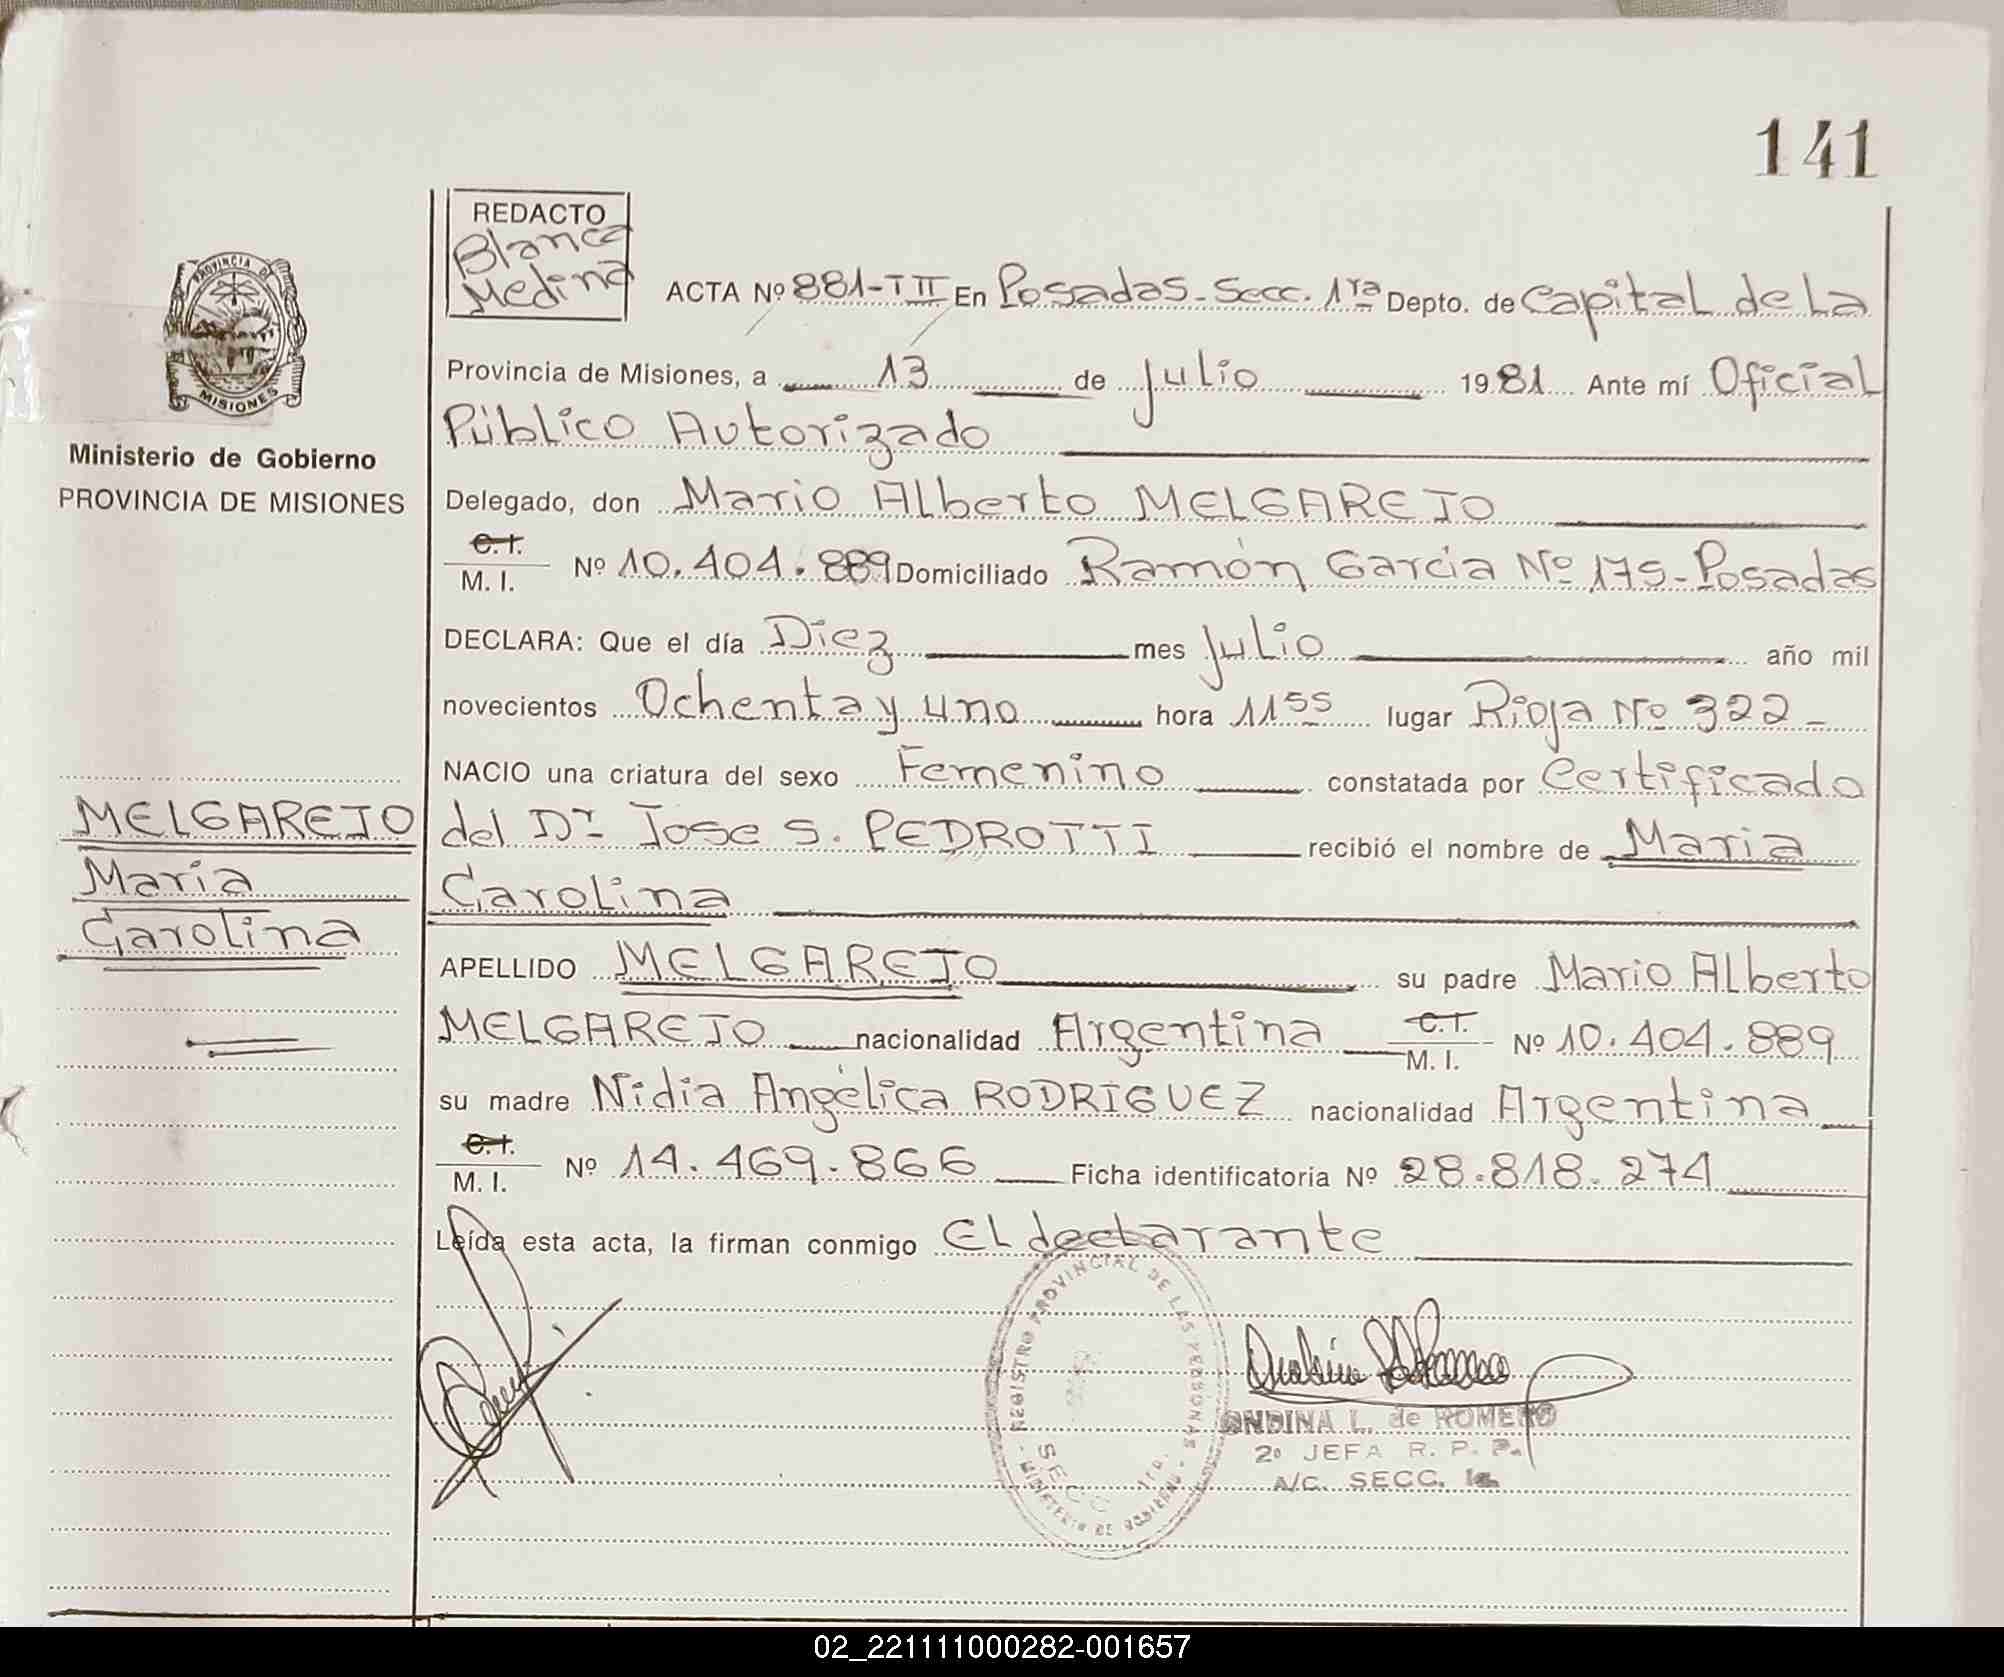 141
PROVINCIA DE
MISIONES
Ministerio de Gobierno
PROVINCIA DE MISIONES
MELGAREJO
María
Carolina
REDACTO
Blanca
Medina
ACTA Nº 881-T II En Posadas-Secc. 1ra Depto. de Capital de La
Provincia de Misiones, a 13 de Julio 1981 Ante mí Oficial
Público Autorizado
Delegado, don Mario Alberto MELGAREJO
C. I.
M. I. Nº 10.404.889 Domiciliado Ramón García Nº 175-Posadas
DECLARA: Que el día Diez mes Julio año mil
novecientos Ochenta y uno hora 11 55 lugar Rioja Nº 322-
NACIO una criatura del sexo Femenino constatada por Certificado
del Dr Jose S. PEDROTTI recibió el nombre de Maria
Carolina
APELLIDO MELGAREJO su padre Mario Alberto
MELGAREJO nacionalidad Argentina C. I. M. I. Nº 10.404.889
su madre Nidia Angélica RODRIGUEZ nacionalidad Argentina
C. I.
M. I. Nº 14.469.866 Ficha identificatoria Nº 28.818.274
Leída esta acta, la firman conmigo El declarante
REGISTRO PROVINCIAL DE LAS PERSONAS
SECC 1ra.
MINISTERIO DE GOBIERNO
ONDINA L. de ROMERO
2º JEFA R. P. P.
A/C. SECC. 1a.
02_221111000282-001657